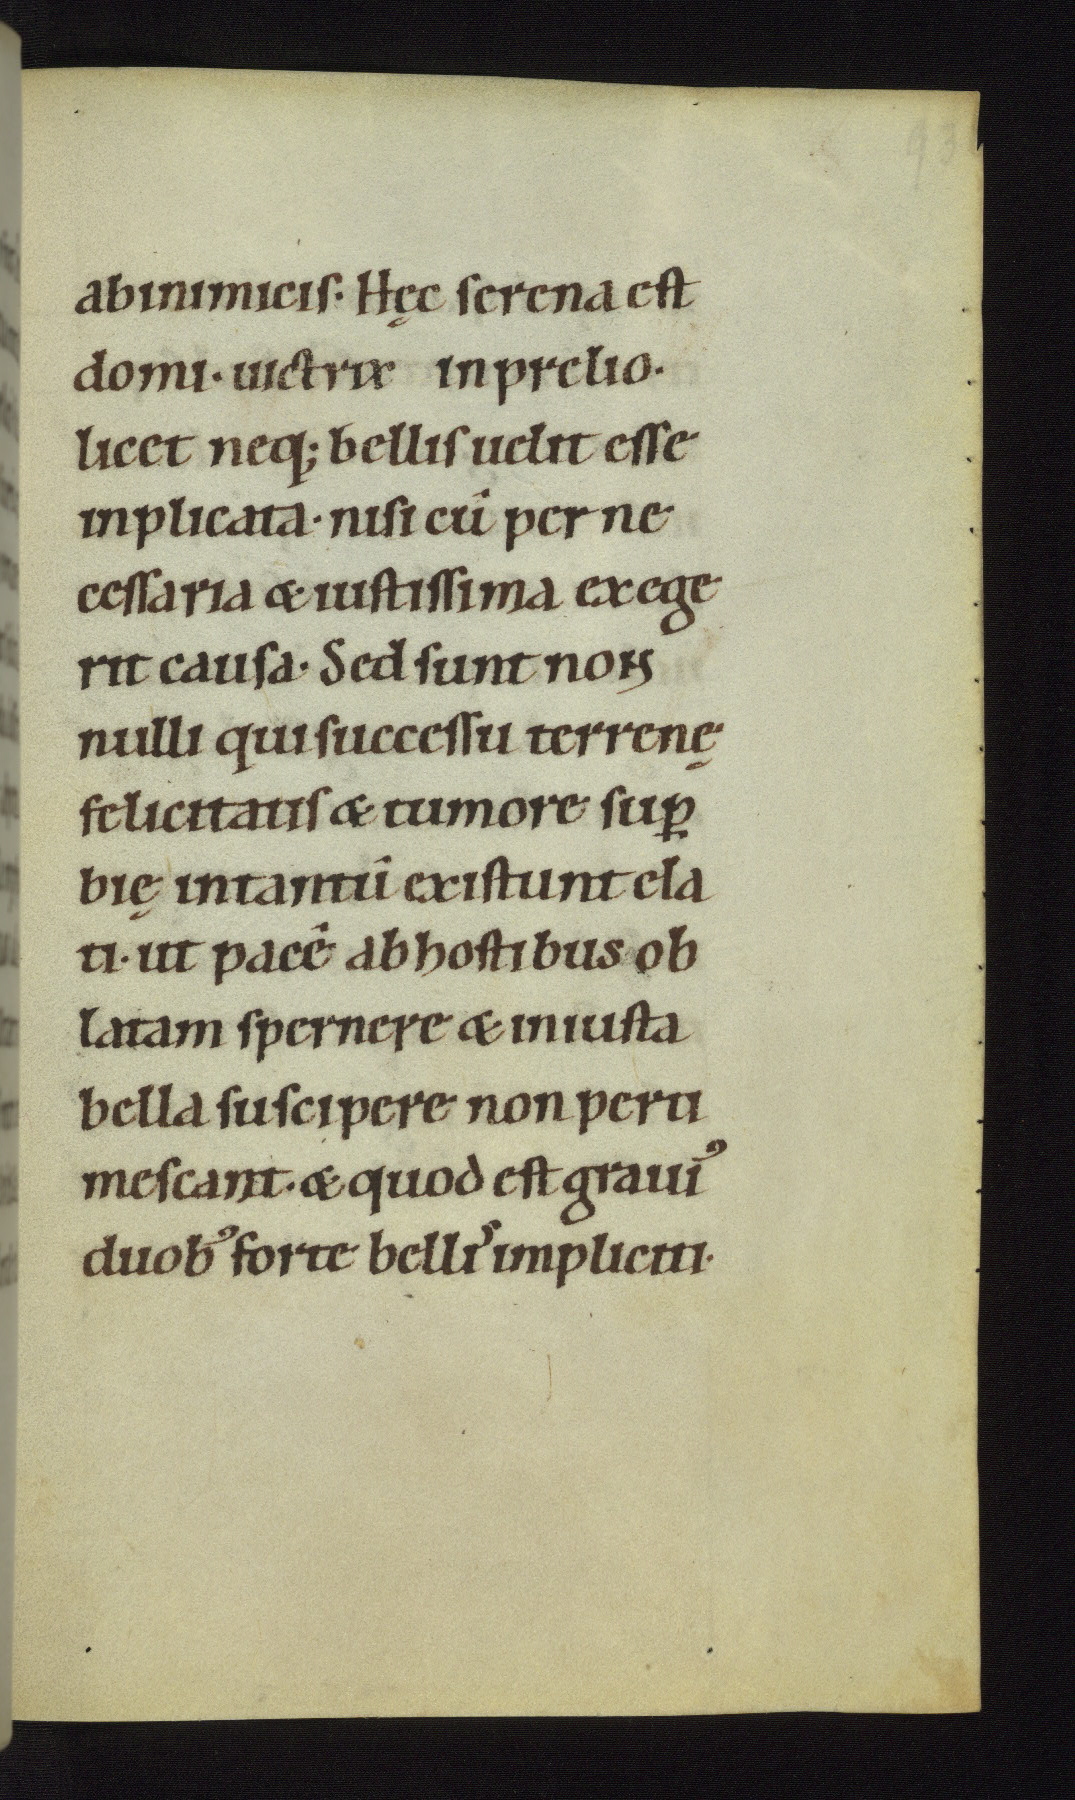 93
abinimicis· Hęc serena est
domi· uictrix in prelio·
licet neq; bellis uelit esse
inplicata· nisi cū per ne
cessaria & iustissima exege
rit causa· Sed sunt non
nulli qui successu terrenę
felicitatis & tumore suꝑ
bię intantū existunt ela
ti· ut pacē ab hostibus ob
latam spernere & iniusta
bella suscipere non perti
mescant· & quod est grauiꝰ
duobꝰ forte bellis impliciti·